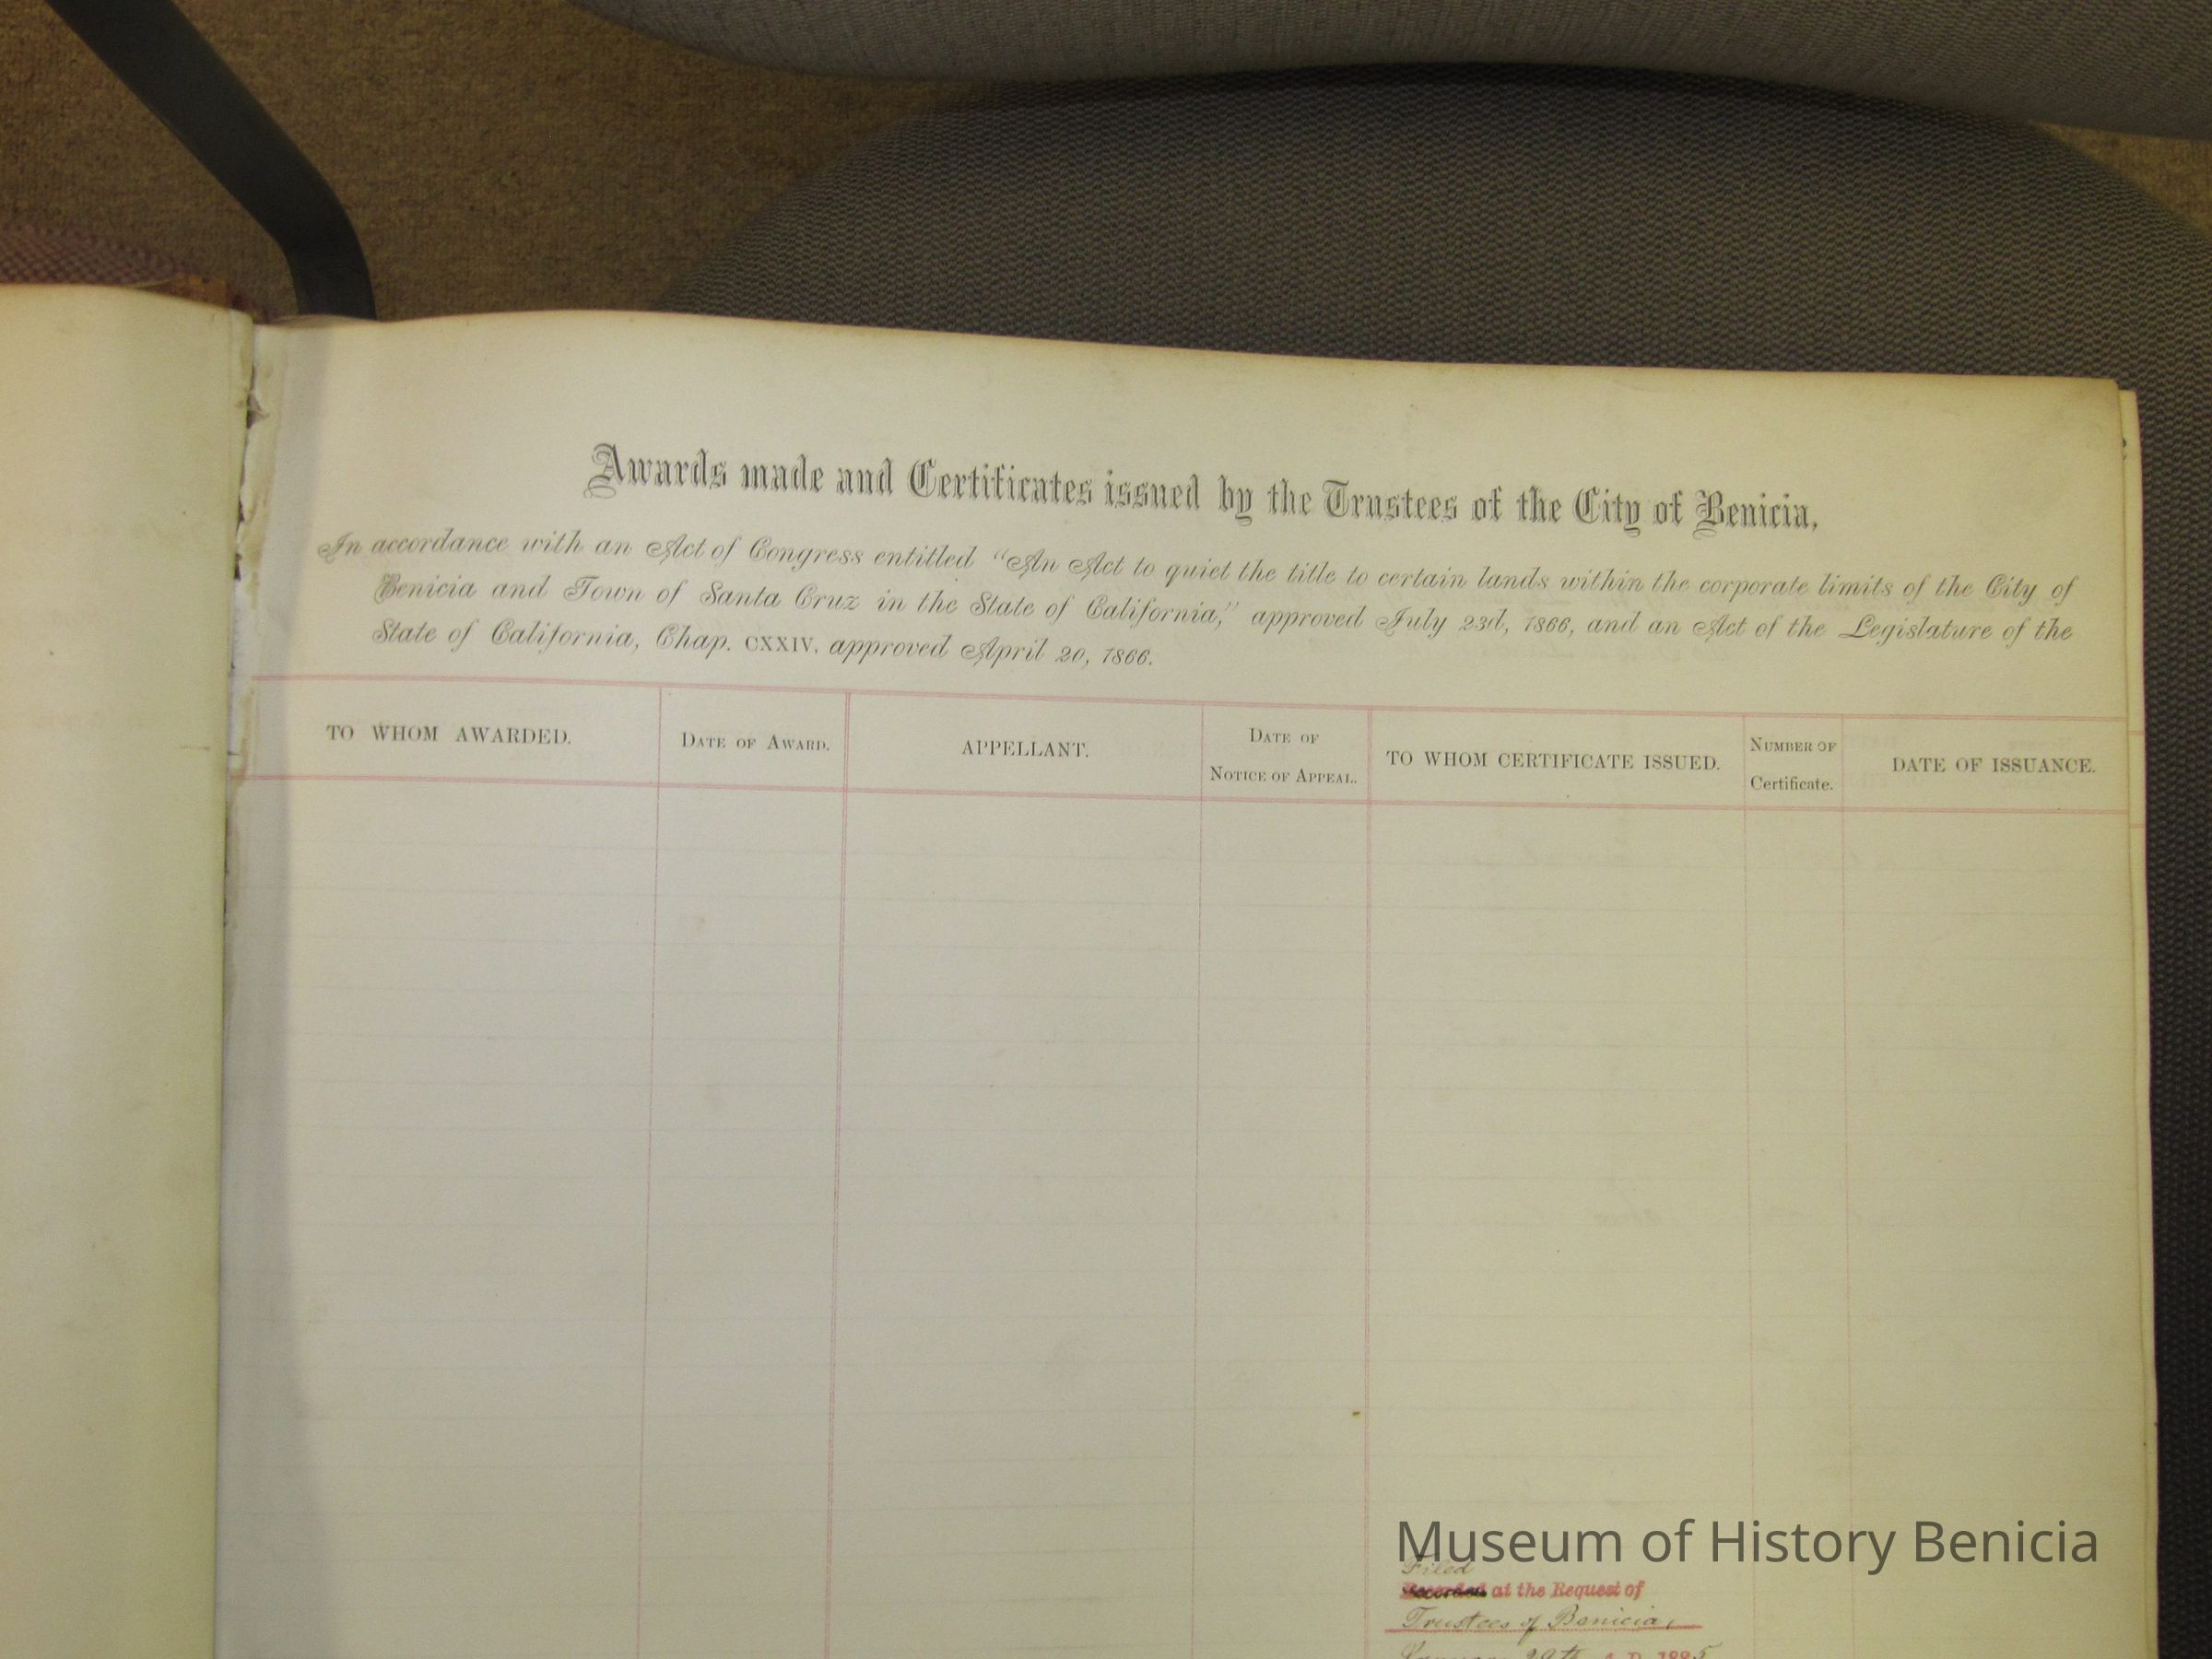 Awards made and Certificates issued by the Trustees of the City of Benicia,
In accordance with an Act of Congress entitled "An Act to quiet the title to certain lands within the corporate limits of the City of
Benicia and Town of Santa Cruz in the State of California," approved July 23d, 1866, and an Act of the Legislature of the
State of California, Chap. CXXIV. approved April 20, 1866.
TO WHOM AWARDED.
DATE OF AWARD.
APPELLANT.
DATE OF
NOTICE OF APPEAL.
TO WHOM CERTIFICATE ISSUED.
NUMBER OF
Certificate.
DATE OF ISSUANCE.
Museum of History Benicia
Filed
Recorded at the Request of
Trustees of Benicia,
29th A.D. 1885